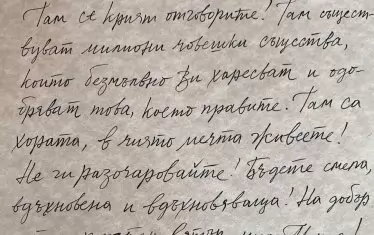 Там се крият отговорите! Там същест-
вуват милиони човешки същества,
които безмълвно Ви харесват и одо-
бряват това, което правите. Там са
хората, в чиято мечта живеете!
Не ги разочаровайте! Бъдете смела,
вдъхновена и вдъхновяваща! На добър